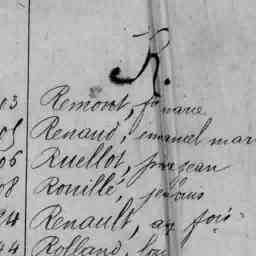 R.
03 Remont, fs marie
05 Renaud, emanuel mar
06 Ruellot, pre jean
08 Rouillé, je louis
24 Renault, au fois
44 Rolland, lou